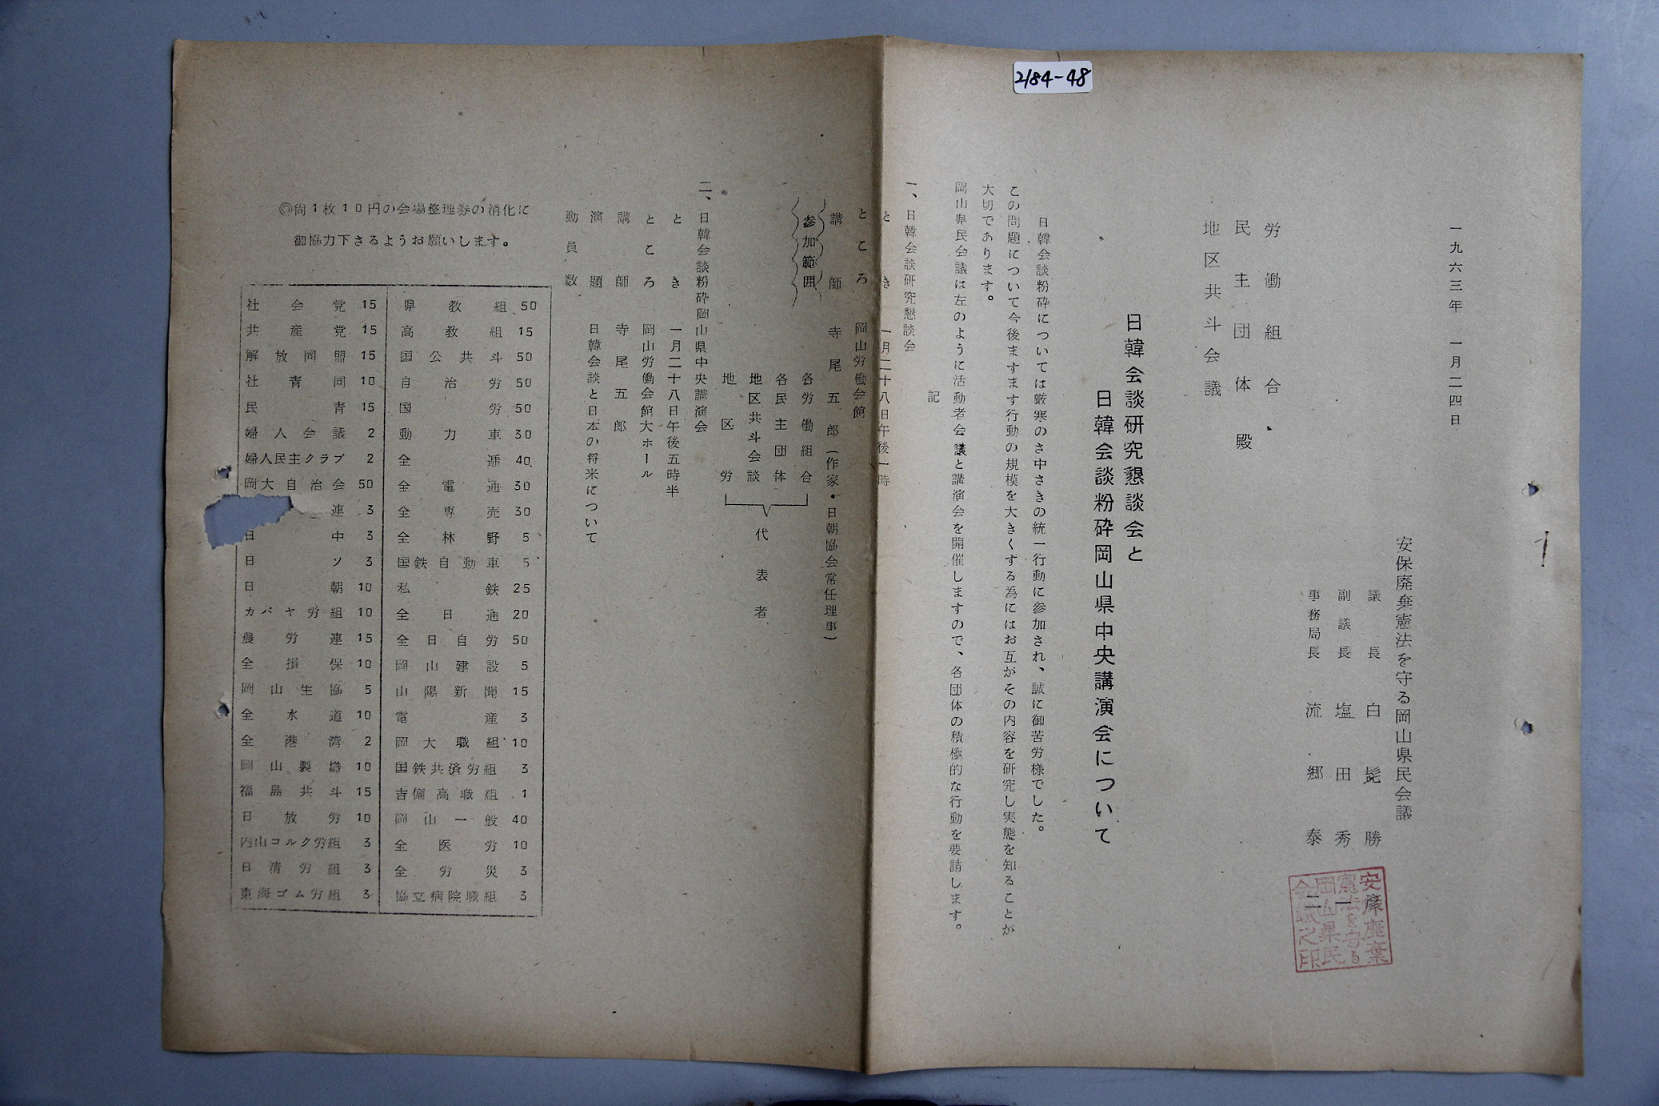 2184-48
一九六三年　一月二四日
安保廃棄憲法を守る岡山県民会議
議長　白髭　勝
副議長　塩田秀一
事務局長　流郷泰二
安保廃棄
憲法を守る
岡山県民
会議之印
労働組合
民主団体　殿
地区共斗会議
日韓会談研究懇談会と
日韓会談粉砕岡山県中央講演会について
日韓会談粉砕については厳寒のさ中さきの統一行動に参加され、誠に御苦労様でした。
この問題について今後ますます行動の規模を大きくする為にはお互がその内容を研究し実態を知ることが
大切であります。
岡山県民会議は左のように活動者会議と講演会を開催しますので、各団体の積極的な行動を要請します。
記
一、日韓会談研究懇談会
とき　一月二十八日午後一時
ところ　岡山労働会館
講師　寺尾五郎（作家・日朝協会常任理事）
参加範囲　各労働組合
各民主団体
地区共斗会談
地区労
代表者
二、日韓会談粉砕岡山県中央講演会
とき　一月二十八日午後五時半
ところ　岡山労働会館大ホール
講師　寺尾五郎
演題　日韓会談と日本の将来について
動員数
県教組 50
高教組 15
国公共斗 50
自治労 50
国労 50
動力車 30
全逓 40
全電通 30
全専売 30
全林野 5
国鉄自動車 5
私鉄 25
全日通 20
全日自労 50
岡山建設 5
山陽新聞 15
電産 3
岡大職組 10
国鉄共済労組 3
吉備高職組 1
岡山一般 40
全医労 10
全労災 3
協立病院職組 3
社会党 15
共産党 15
解放同盟 15
社青同 10
民青 15
婦人会議 2
婦人民主クラブ 2
岡大自治会 50
連 3
日中 3
日ソ 3
日朝 10
カバヤ労組 10
農労連 15
全損保 10
岡山生協 5
全水道 10
全港湾 2
岡山製 10
福島共斗 15
日放労 10
内山コルク労組 3
日清労組 3
東海ゴム労組 3
◎尚1枚10円の会場整理券の消化に
御協力下さるようお願いします。